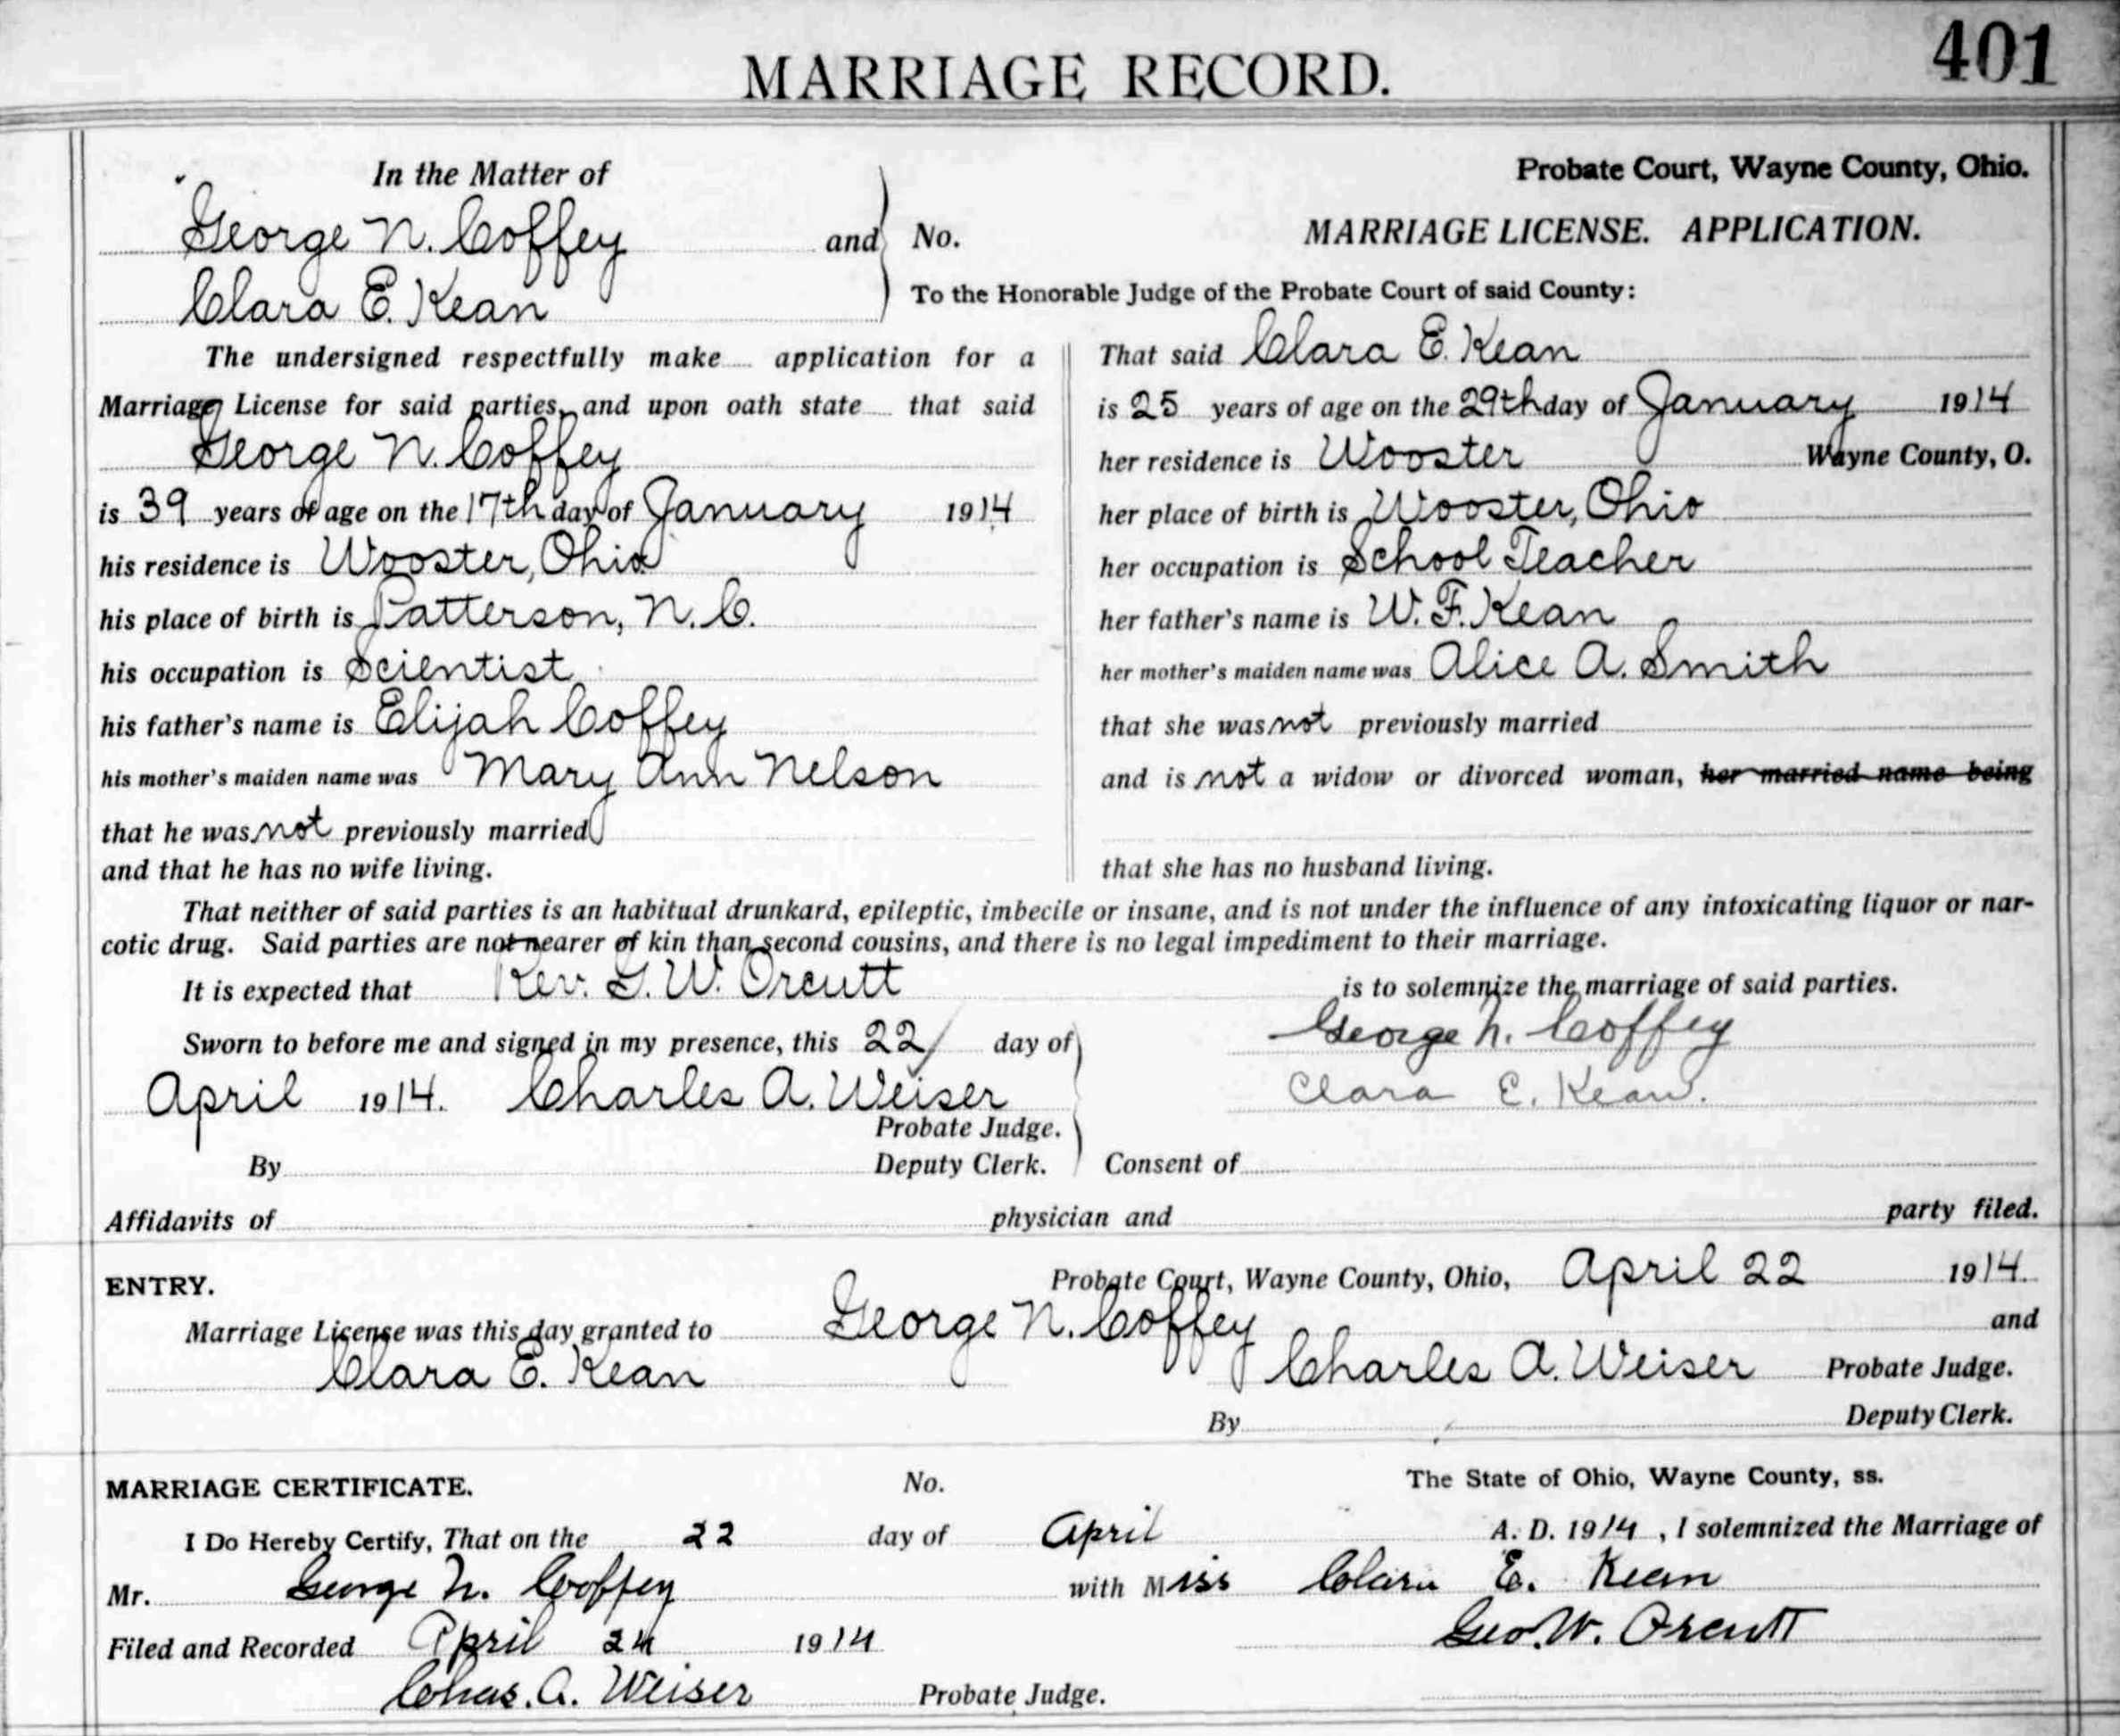 MARRIAGE RECORD.
401
In the Matter of
George N. Coffey and
Clara E. Kean
No.
Probate Court, Wayne County, Ohio.
MARRIAGE LICENSE. APPLICATION.
To the Honorable Judge of the Probate Court of said County:
The undersigned respectfully make application for a
Marriage License for said parties, and upon oath state that said
George N. Coffey
is 39 years of age on the 17th day of January 1914
his residence is Wooster, Ohio
his place of birth is Patterson, N.C.
his occupation is Scientist
his father's name is Elijah Coffey
his mother's maiden name was Mary Ann Nelson
that he was not previously married
and that he has no wife living.
That said Clara E. Kean
is 25 years of age on the 29th day of January 1914
her residence is Wooster Wayne County, O.
her place of birth is Wooster, Ohio
her occupation is School Teacher
her father's name is W. F. Kean
her mother's maiden name was Alice A. Smith
that she was not previously married
and is not a widow or divorced woman, her married name being
that she has no husband living.
That neither of said parties is an habitual drunkard, epileptic, imbecile or insane, and is not under the influence of any intoxicating liquor or nar-
cotic drug. Said parties are not nearer of kin than second cousins, and there is no legal impediment to their marriage.
It is expected that Rev. G. W. Orcutt is to solemnize the marriage of said parties.
Sworn to before me and signed in my presence, this 22 day of
April 1914. Charles A. Weiser
Probate Judge.
By Deputy Clerk.
George N. Coffey
Clara E. Kean.
Consent of
Affidavits of physician and party filed.
ENTRY. Probate Court, Wayne County, Ohio, April 22 1914.
Marriage License was this day granted to George N. Coffey and
Clara E. Kean Charles A. Weiser Probate Judge.
By Deputy Clerk.
MARRIAGE CERTIFICATE. No. The State of Ohio, Wayne County, ss.
I Do Hereby Certify, That on the 22 day of April A. D. 1914, I solemnized the Marriage of
Mr. George N. Coffey with Miss Clara E. Kean
Filed and Recorded April 24 1914 Geo. W. Orcutt
Chas. A. Weiser Probate Judge.